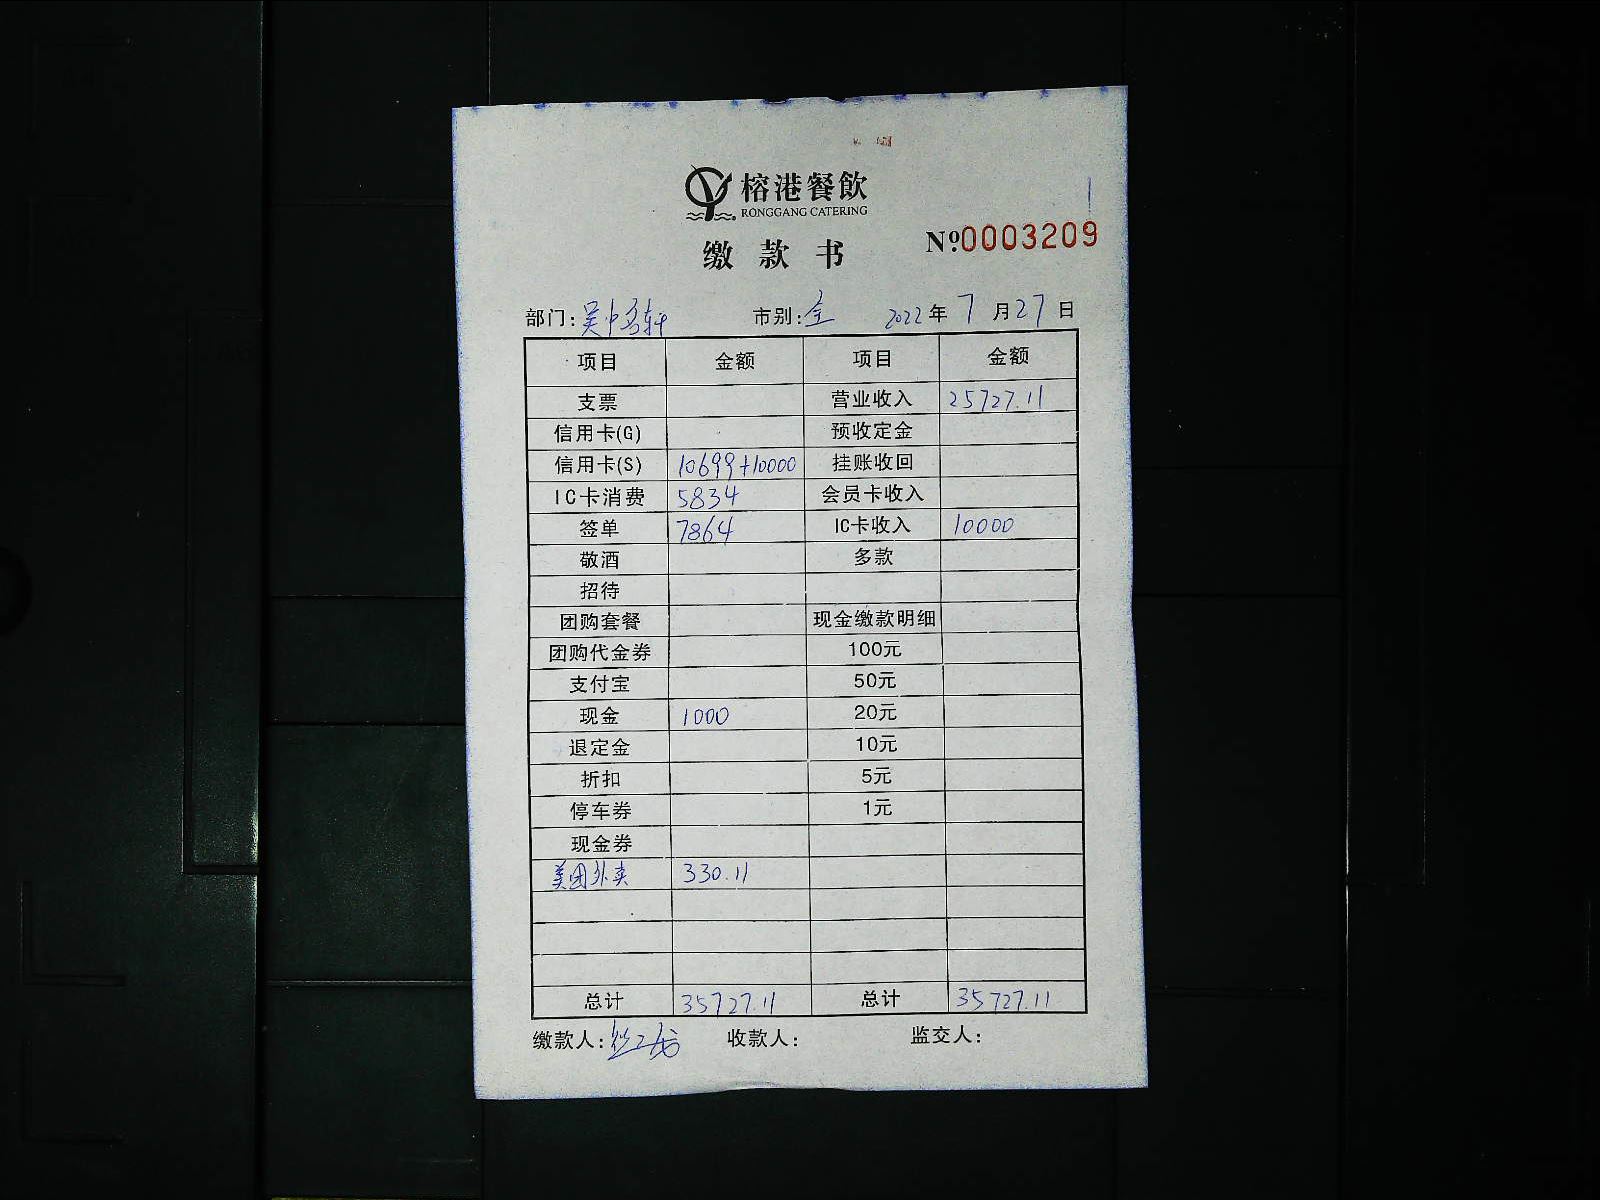 榕港餐飲
RONGGANG CATERING
缴款书
№0003209
部门:吴中 轩 市别:全 2022年7月27日
项目 金额 项目 金额
支票 营业收入 25727.11
信用卡(G) 预收定金
信用卡(S) 10699+10000 挂账收回
IC卡消费 5834 会员卡收入
签单 7864 IC卡收入 10000
敬酒 多款
招待
团购套餐 现金缴款明细
团购代金券 100元
支付宝 50元
现金 1000 20元
退定金 10元
折扣 5元
停车券 1元
现金券
美团外卖 330.11
总计 35727.11 总计 35727.11
缴款人: 收款人: 监交人: